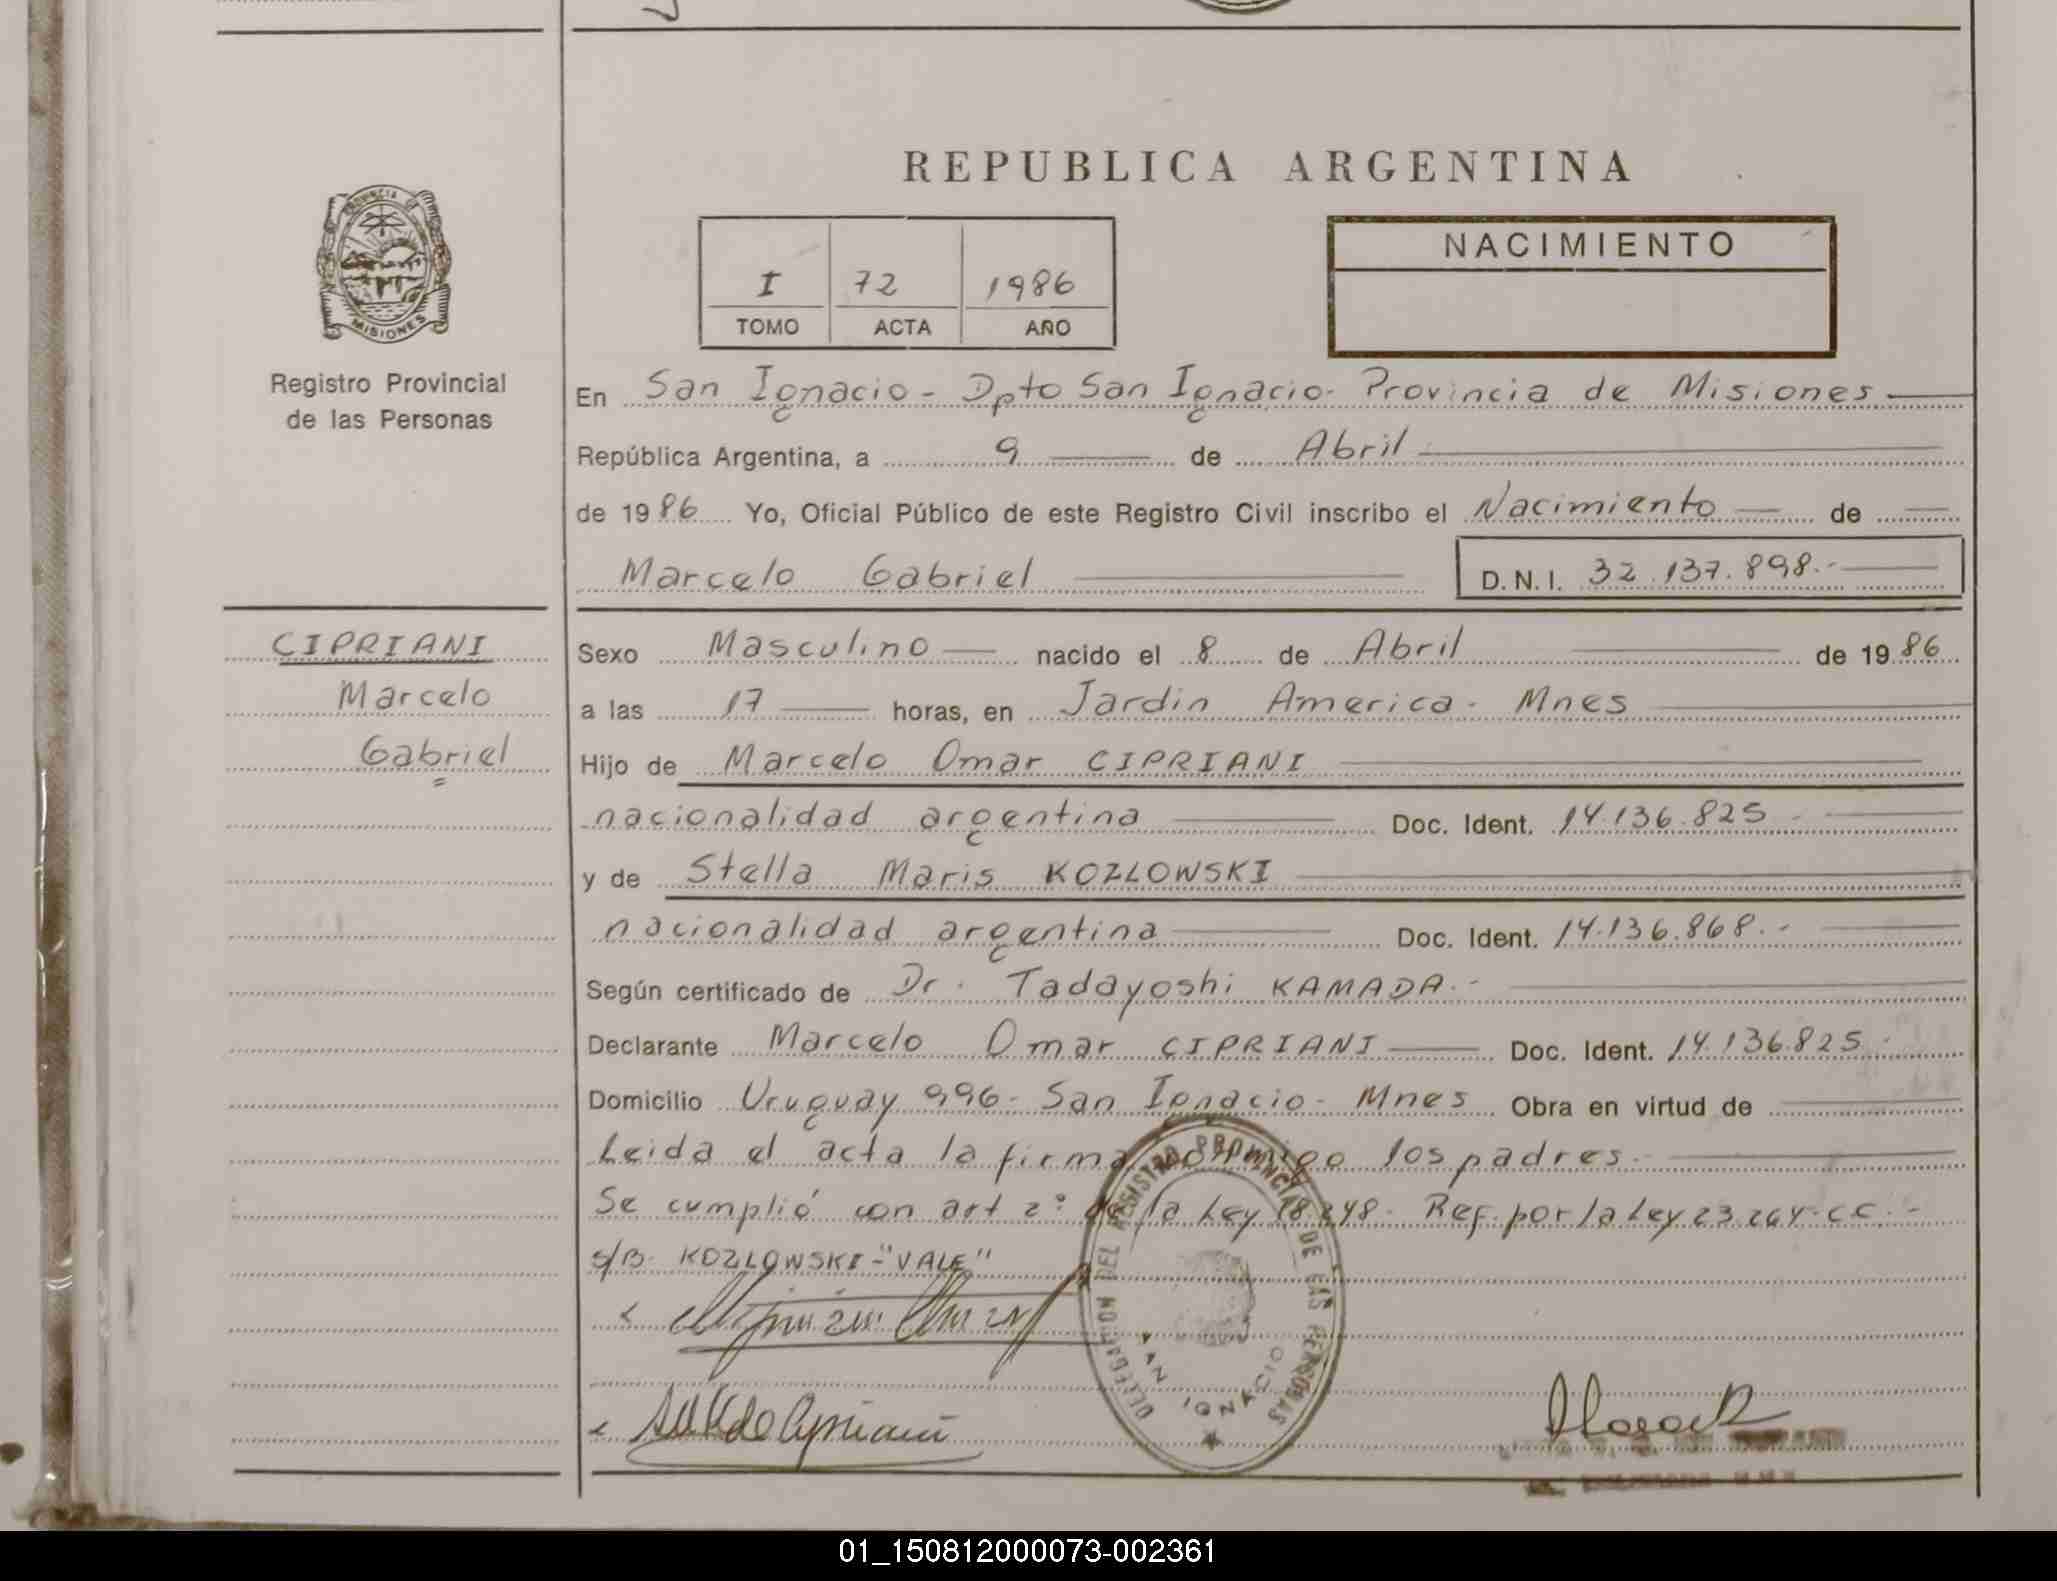 REPUBLICA ARGENTINA
PROVINCIA DE
MISIONES
Registro Provincial
de las Personas
I 72 1986
TOMO ACTA AÑO
NACIMIENTO
En San Ignacio - Dpto San Ignacio - Provincia de Misiones
República Argentina, a 9 de Abril
de 1986 Yo, Oficial Público de este Registro Civil inscribo el Nacimiento de
Marcelo Gabriel D.N.I. 32.137.898.-
CIPRIANI
Marcelo
Gabriel
Sexo Masculino nacido el 8 de Abril de 1986
a las 17 horas, en Jardin America - Mnes
Hijo de Marcelo Omar CIPRIANI
nacionalidad argentina Doc. Ident. 14.136.825 -
y de Stella Maris KOZLOWSKI
nacionalidad argentina Doc. Ident. 14.136.868.-
Según certificado de Dr. Tadayoshi KAMADA.-
Declarante Marcelo Omar CIPRIANI Doc. Ident. 14.136.825
Domicilio Uruguay 996 - San Ignacio - Mnes Obra en virtud de
Leida el acta la firman conmigo los padres.
Se cumplió con art 2° de la Ley 18.248 - Ref. por la Ley 23.264 - CC. -
s/B. KOZLOWSKI - "VALE"
DELEGACION DEL REGISTRO PROVINCIAL DE LAS PERSONAS
SAN IGNACIO
01_150812000073-002361